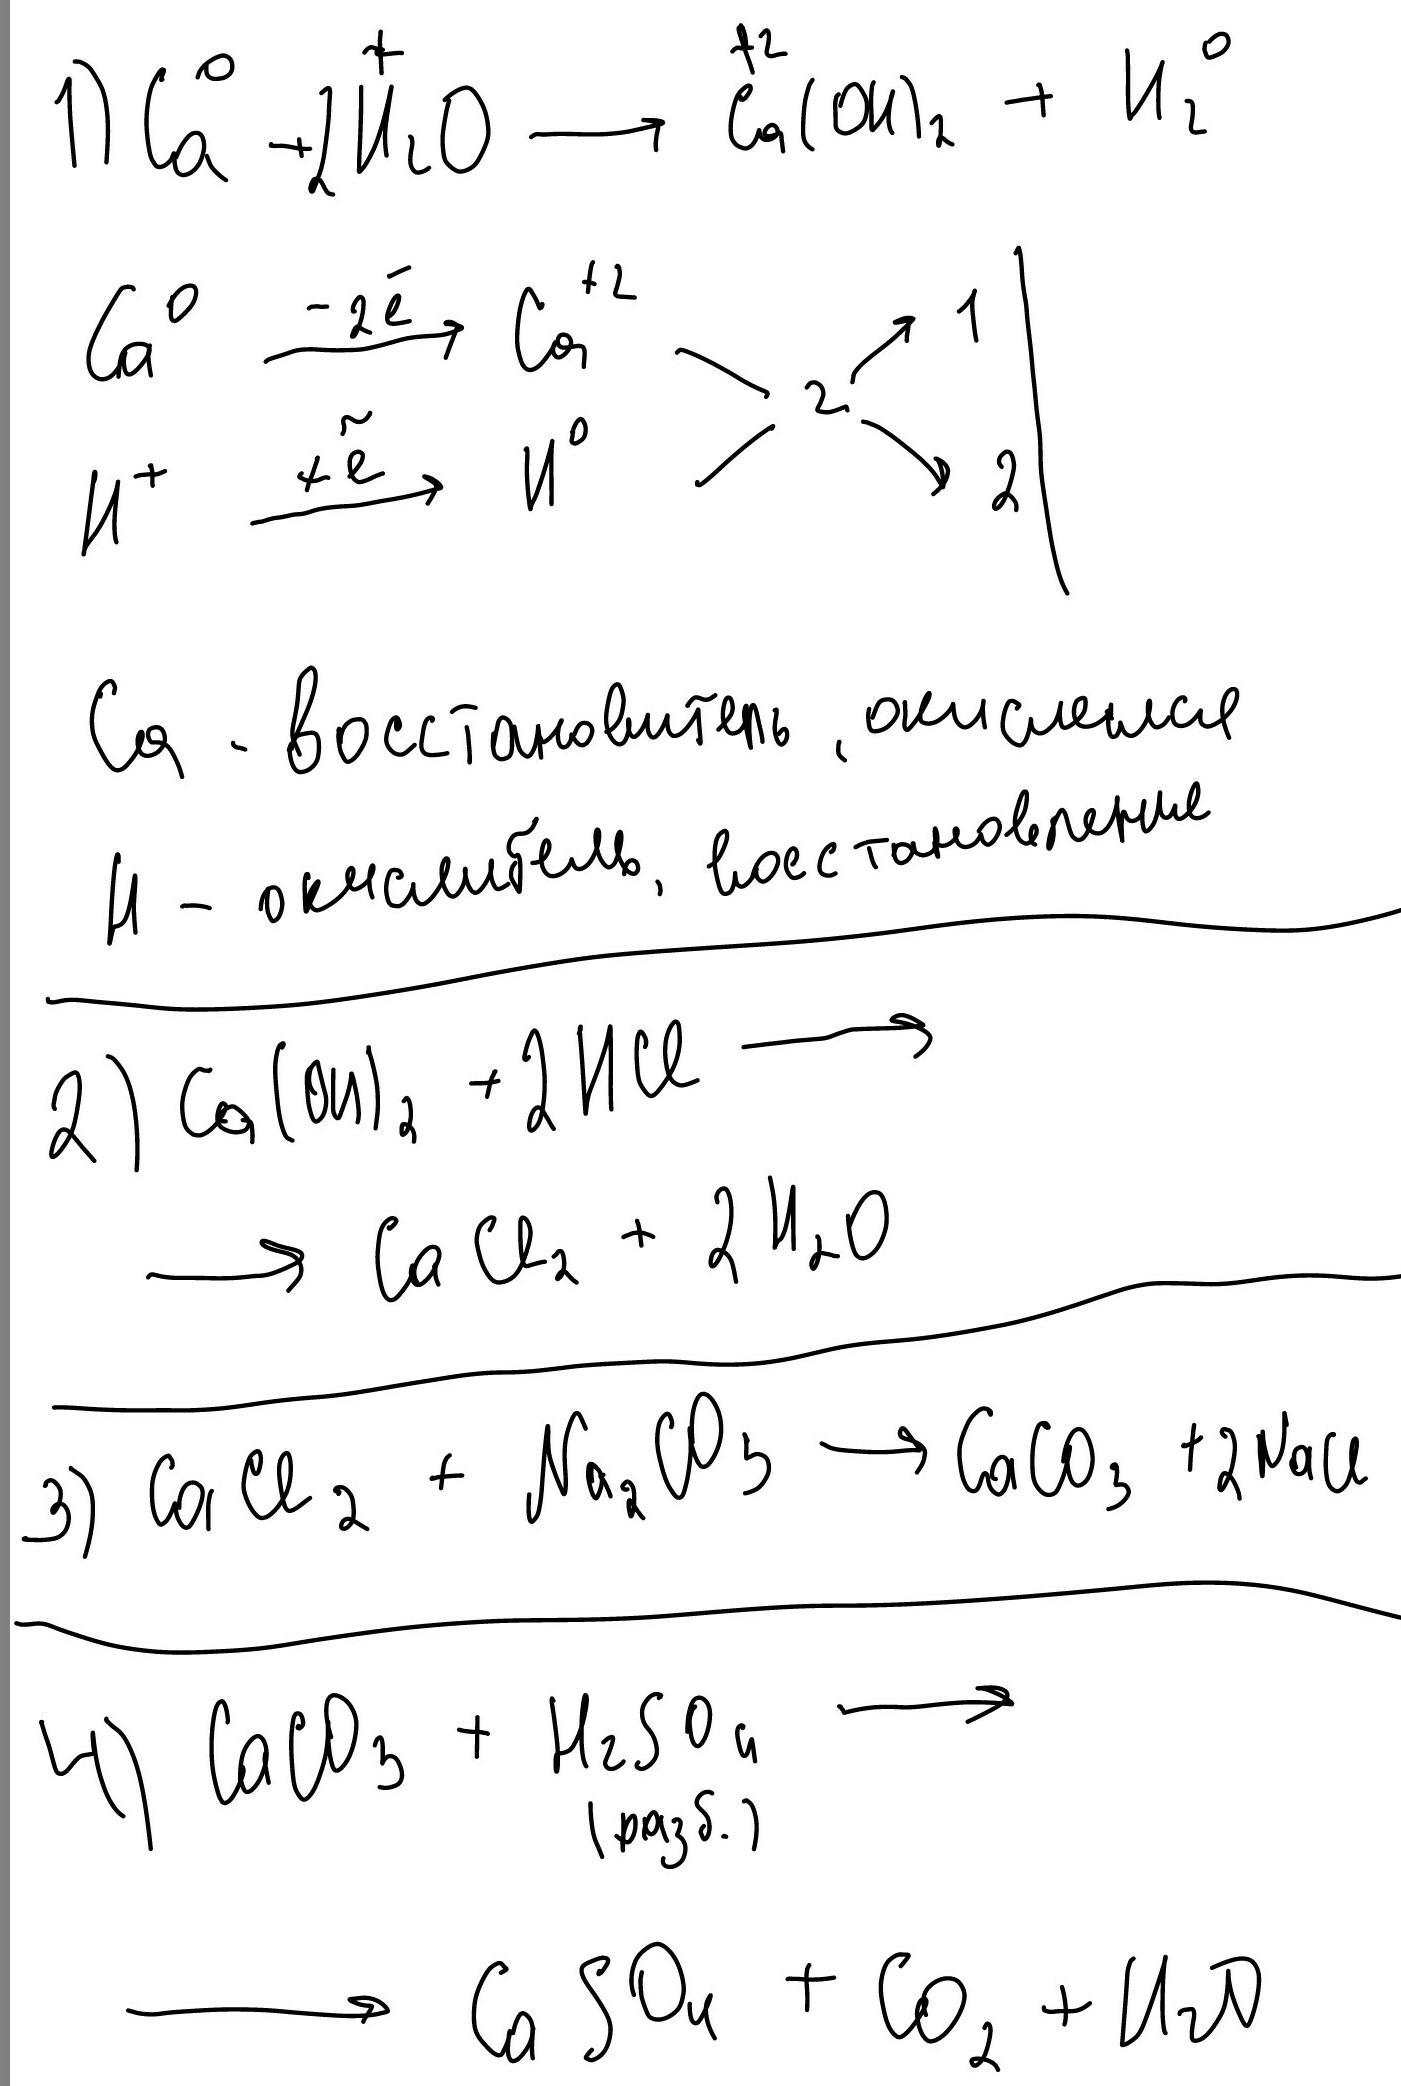 1) Ca⁰ + 2H⁺₂O → Ca⁺²(OH)₂ + H₂⁰
Ca⁰ –2ē → Ca⁺² 2 1
H⁺ +ē → H⁰ 2
Ca - восстановитель, окисляется
H – окислитель, восстановление
2) Ca(OH)₂ + 2HCl →
→ CaCl₂ + 2H₂O
3) CaCl₂ + Na₂CO₃ → CaCO₃ + 2NaCl
4) CaCO₃ + H₂SO₄ →
(разб.)
→ CaSO₄ + CO₂ + H₂O